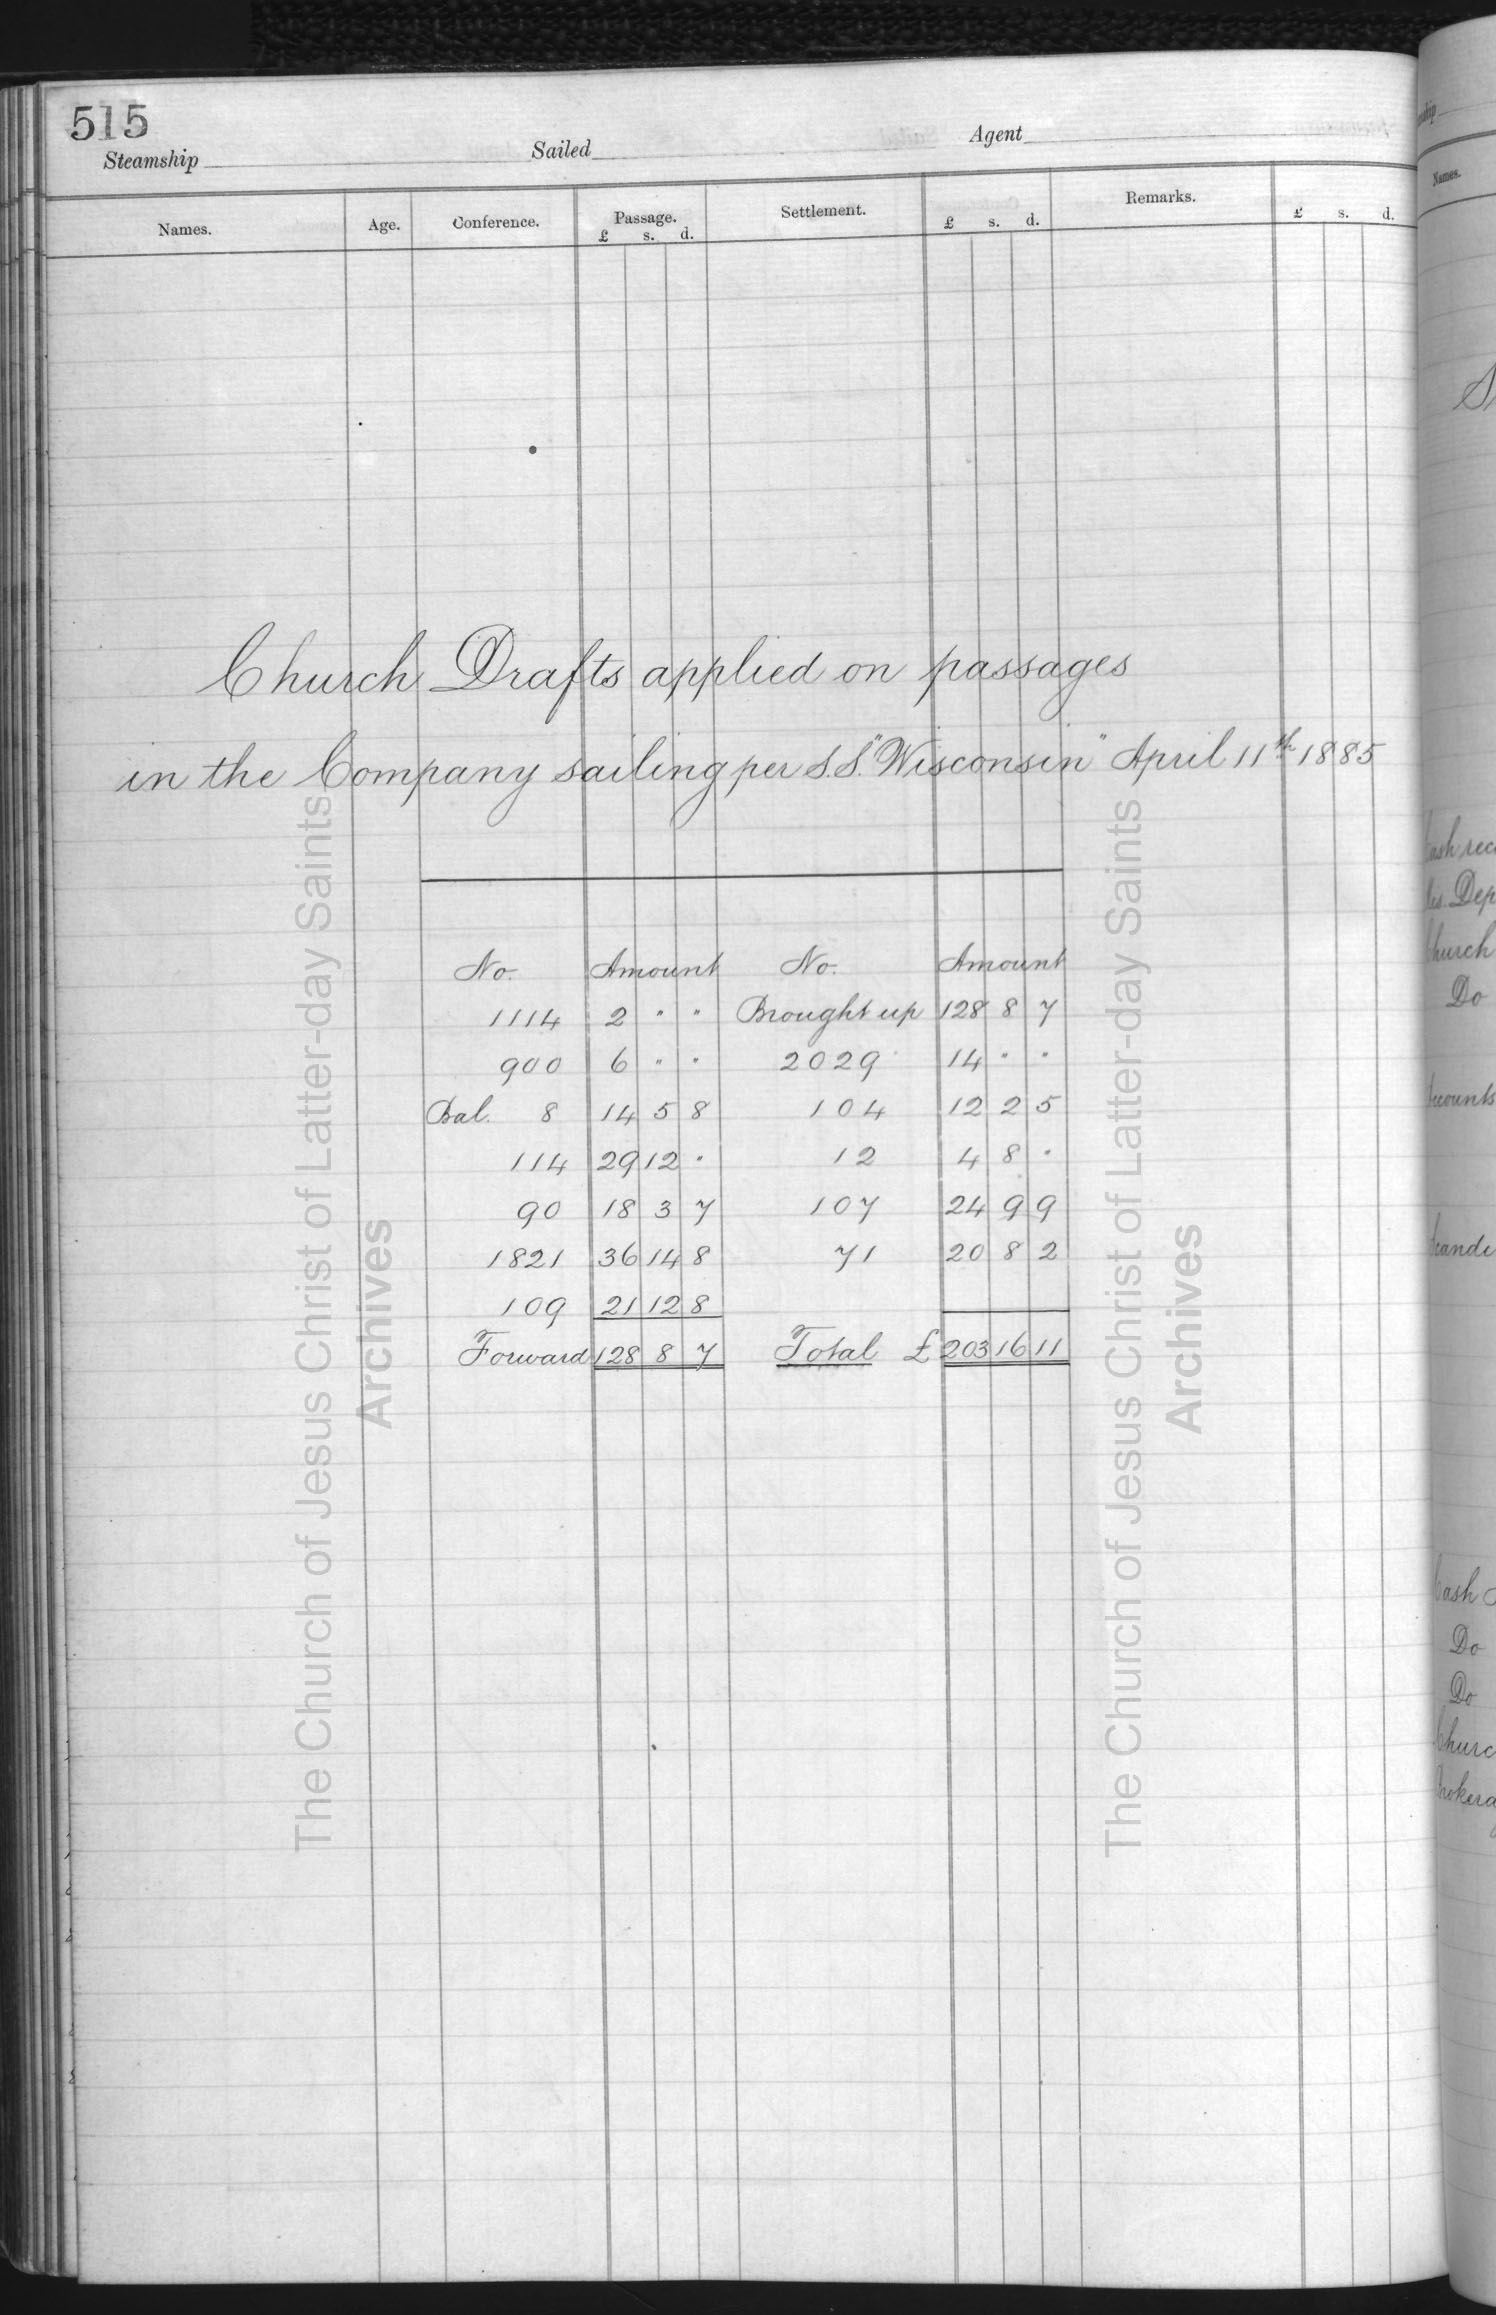 515
Steamship Sailed Agent
Names. Age. Conference. Passage. Settlement. £ s. d. Remarks. £ s. d.
£ s. d.
Church Drafts applied on passages
in the Company sailing per S.S. "Wisconsin" April 11th 1885
No. Amount No. Amount
1114 2 " " Brought up 128 8 7
900 6 " " 2029 14 " "
Bal. 8 14 5 8 104 12 2 5
114 29 12 " 12 4 8 "
90 18 3 7 107 24 9 9
1821 36 14 8 71 20 8 2
109 21 12 8
Forward 128 8 7 Total £ 203 16 11
The Church of Jesus Christ of Latter-day Saints
Archives
The Church of Jesus Christ of Latter-day Saints
Archives
Names.
Do
Cash
Do
Do